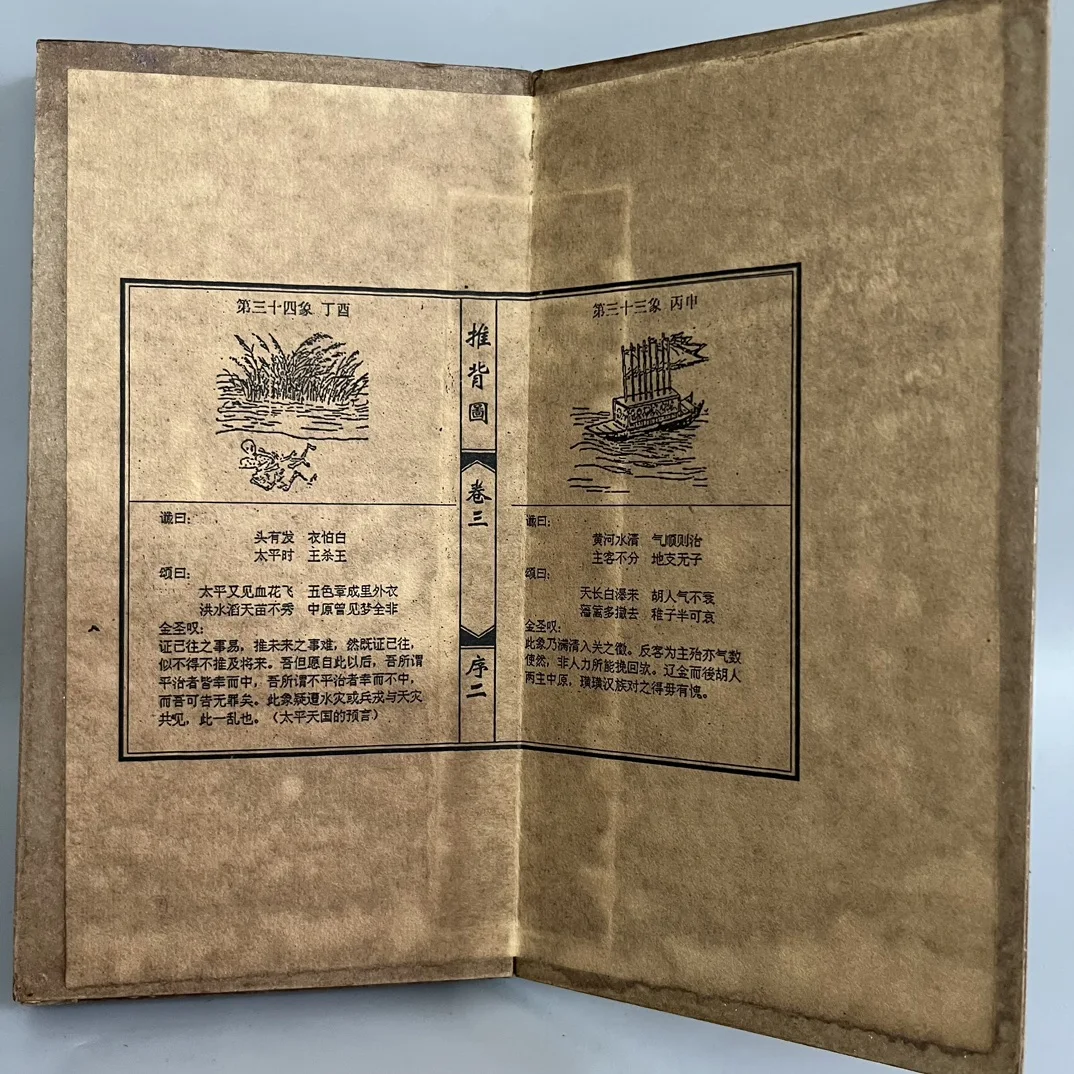 第三十三象 丙申
谶曰：
黄河水清 气顺则治
主客不分 地支无子
颂曰：
天长白瀑来 胡人气不衰
藩篱多撤去 稚子半可哀
金圣叹：
此象乃满清入关之徵。反客为主殆亦气数
使然，非人力所能挽回欤。辽金而後胡人
两主中原，璜璜汉族对之得毋有愧。
推背圖
卷三
序二
第三十四象 丁酉
谶曰：
头有发 衣怕白
太平时 王杀王
颂曰：
太平又见血花飞 五色章成里外衣
洪水滔天苗不秀 中原曾见梦全非
金圣叹：
证已往之事易，推未来之事难，然既证已往，
似不得不推及将来。吾但愿自此以后，吾所谓
平治者皆幸而中，吾所谓不平治者幸而不中，
而吾可告无罪矣。此象疑遭水灾或兵戎与天灾
共见，此一乱也。（太平天国的预言）